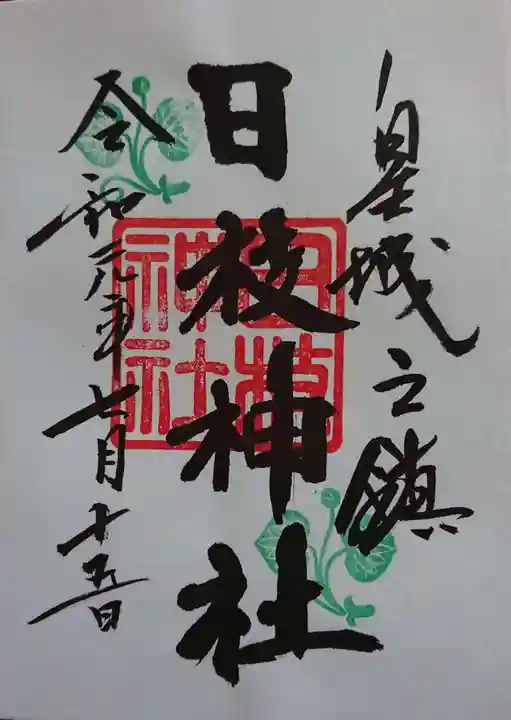 皇城之鎮
日枝神社
日枝
神社
令和元年七月十五日